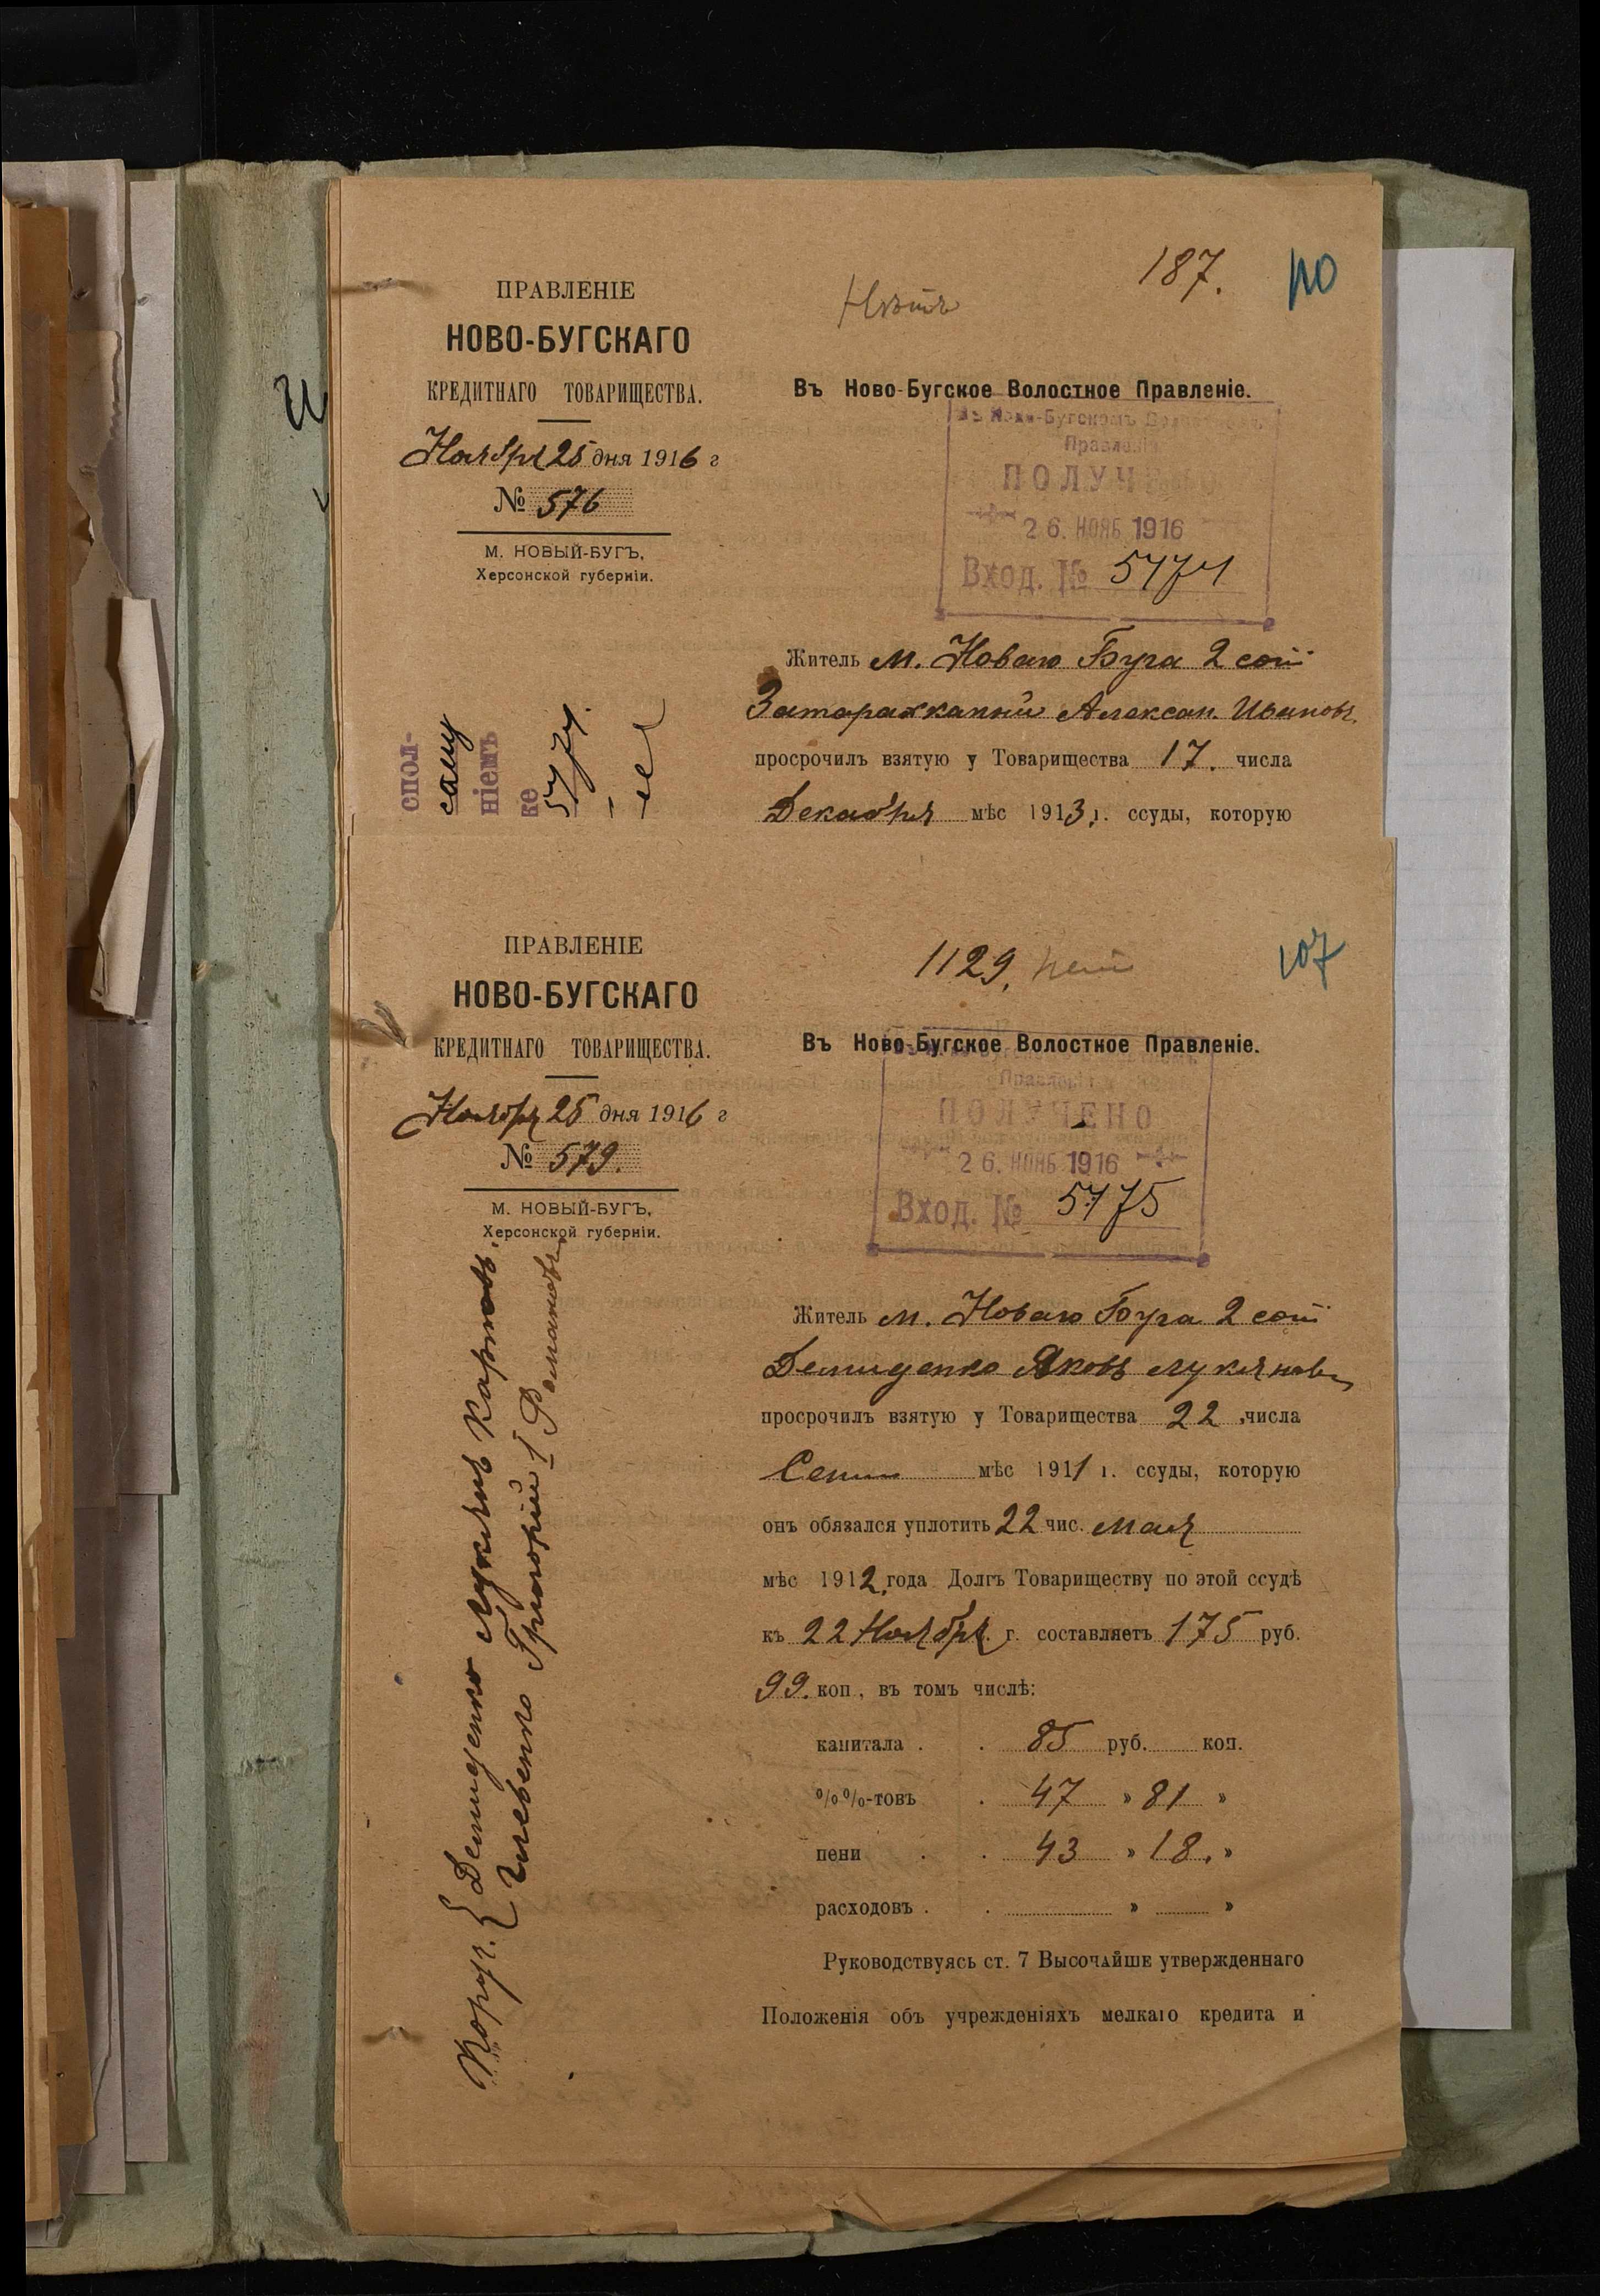 187.
110
Нѣтъ
ПРАВЛЕНІЕ
НОВО-БУГСКАГО
КРЕДИТНАГО ТОВАРИЩЕСТВА.
Ноября 25 дня 1916 г
№ 576
М. НОВЫЙ-БУГЪ,
Херсонской губерніи.
Въ Ново-Бугское Волостное Правленіе.
Въ Ново-Бугскомъ Волостномъ
Правленіи
ПОЛУЧ
26. НОЯБ 1916
Вход. № 5474
Житель м. Новаго Буга 2 сот
Алексан. Ивановъ
просрочилъ взятую у Товарищества 17. числа
Декабря мѣс 1913 г. ссуды, которую
спол-
ніемъ
ке
ПРАВЛЕНІЕ
НОВО-БУГСКАГО
КРЕДИТНАГО ТОВАРИЩЕСТВА.
Ноября 25 дня 1916 г
№ 579.
М. НОВЫЙ-БУГЪ,
Херсонской губерніи.
1129. нет
107
Въ Ново-Бугское Волостное Правленіе.
Правленіи
ПОЛУЧЕНО
26. НОЯБ 1916
Вход. № 5475
Житель м. Новаго Буга 2 сот
Демиденко Яковъ Лукяновъ
просрочилъ взятую у Товарищества 22 числа
Сент мѣс 1911 г. ссуды, которую
онъ обязался уплотить 22 чис. Мая
мѣс 1912 года Долгъ Товариществу по этой ссудѣ
къ 22 Ноября г. составляетъ 175 руб.
99. коп, въ томъ числѣ:
капитала . . 85 руб. коп.
%%-товъ . 47 » 81 »
пени . . 43 » 18. »
расходовъ . . » »
Руководствуясь ст. 7 Высочайше утвержденнаго
Положенія объ учрежденіяхъ мелкаго кредита и
Поруч. { Демиденко Лукянъ Карповъ.
Григорій Романовъ